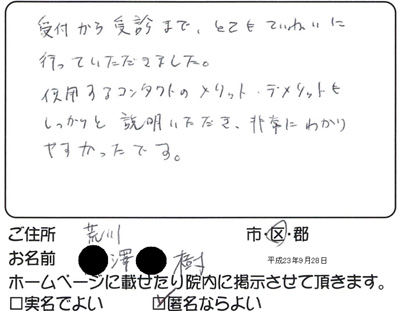 受付から受診まで、とてもていねいに
行っていただきました。
使用するコンタクトのメリット・デメリットも
しっかりと説明いただき、非常にわかり
やすかったです。
ご住所 荒川 市・区・郡
お名前 ●澤●樹 平成23年9月28日
ホームページに載せたり院内に掲示させて頂きます。
□実名でよい ☑匿名ならよい